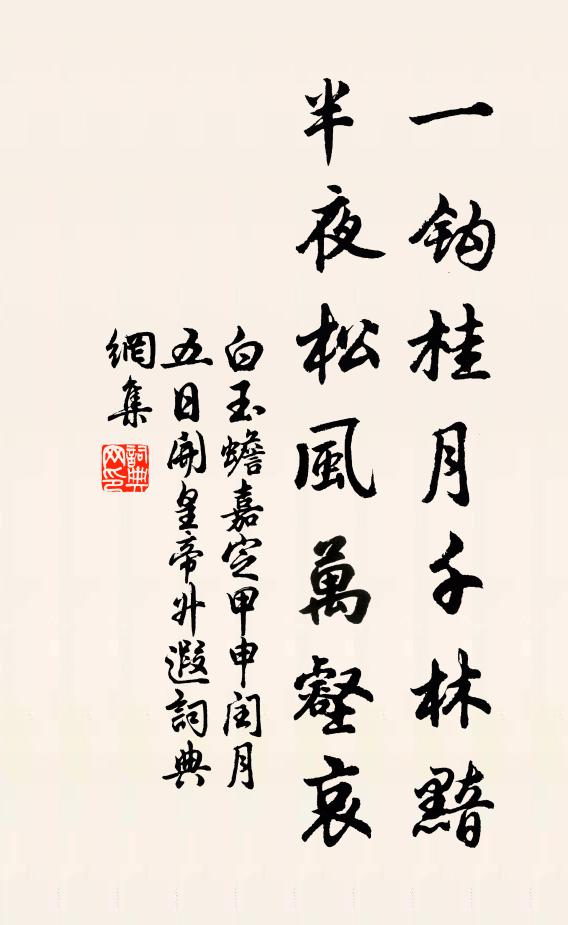 一鈎桂月千林黯
半夜松風萬壑哀
白玉蟾嘉定甲申閏月
五日聞皇帝升遐詞典
網集
詞典
网印